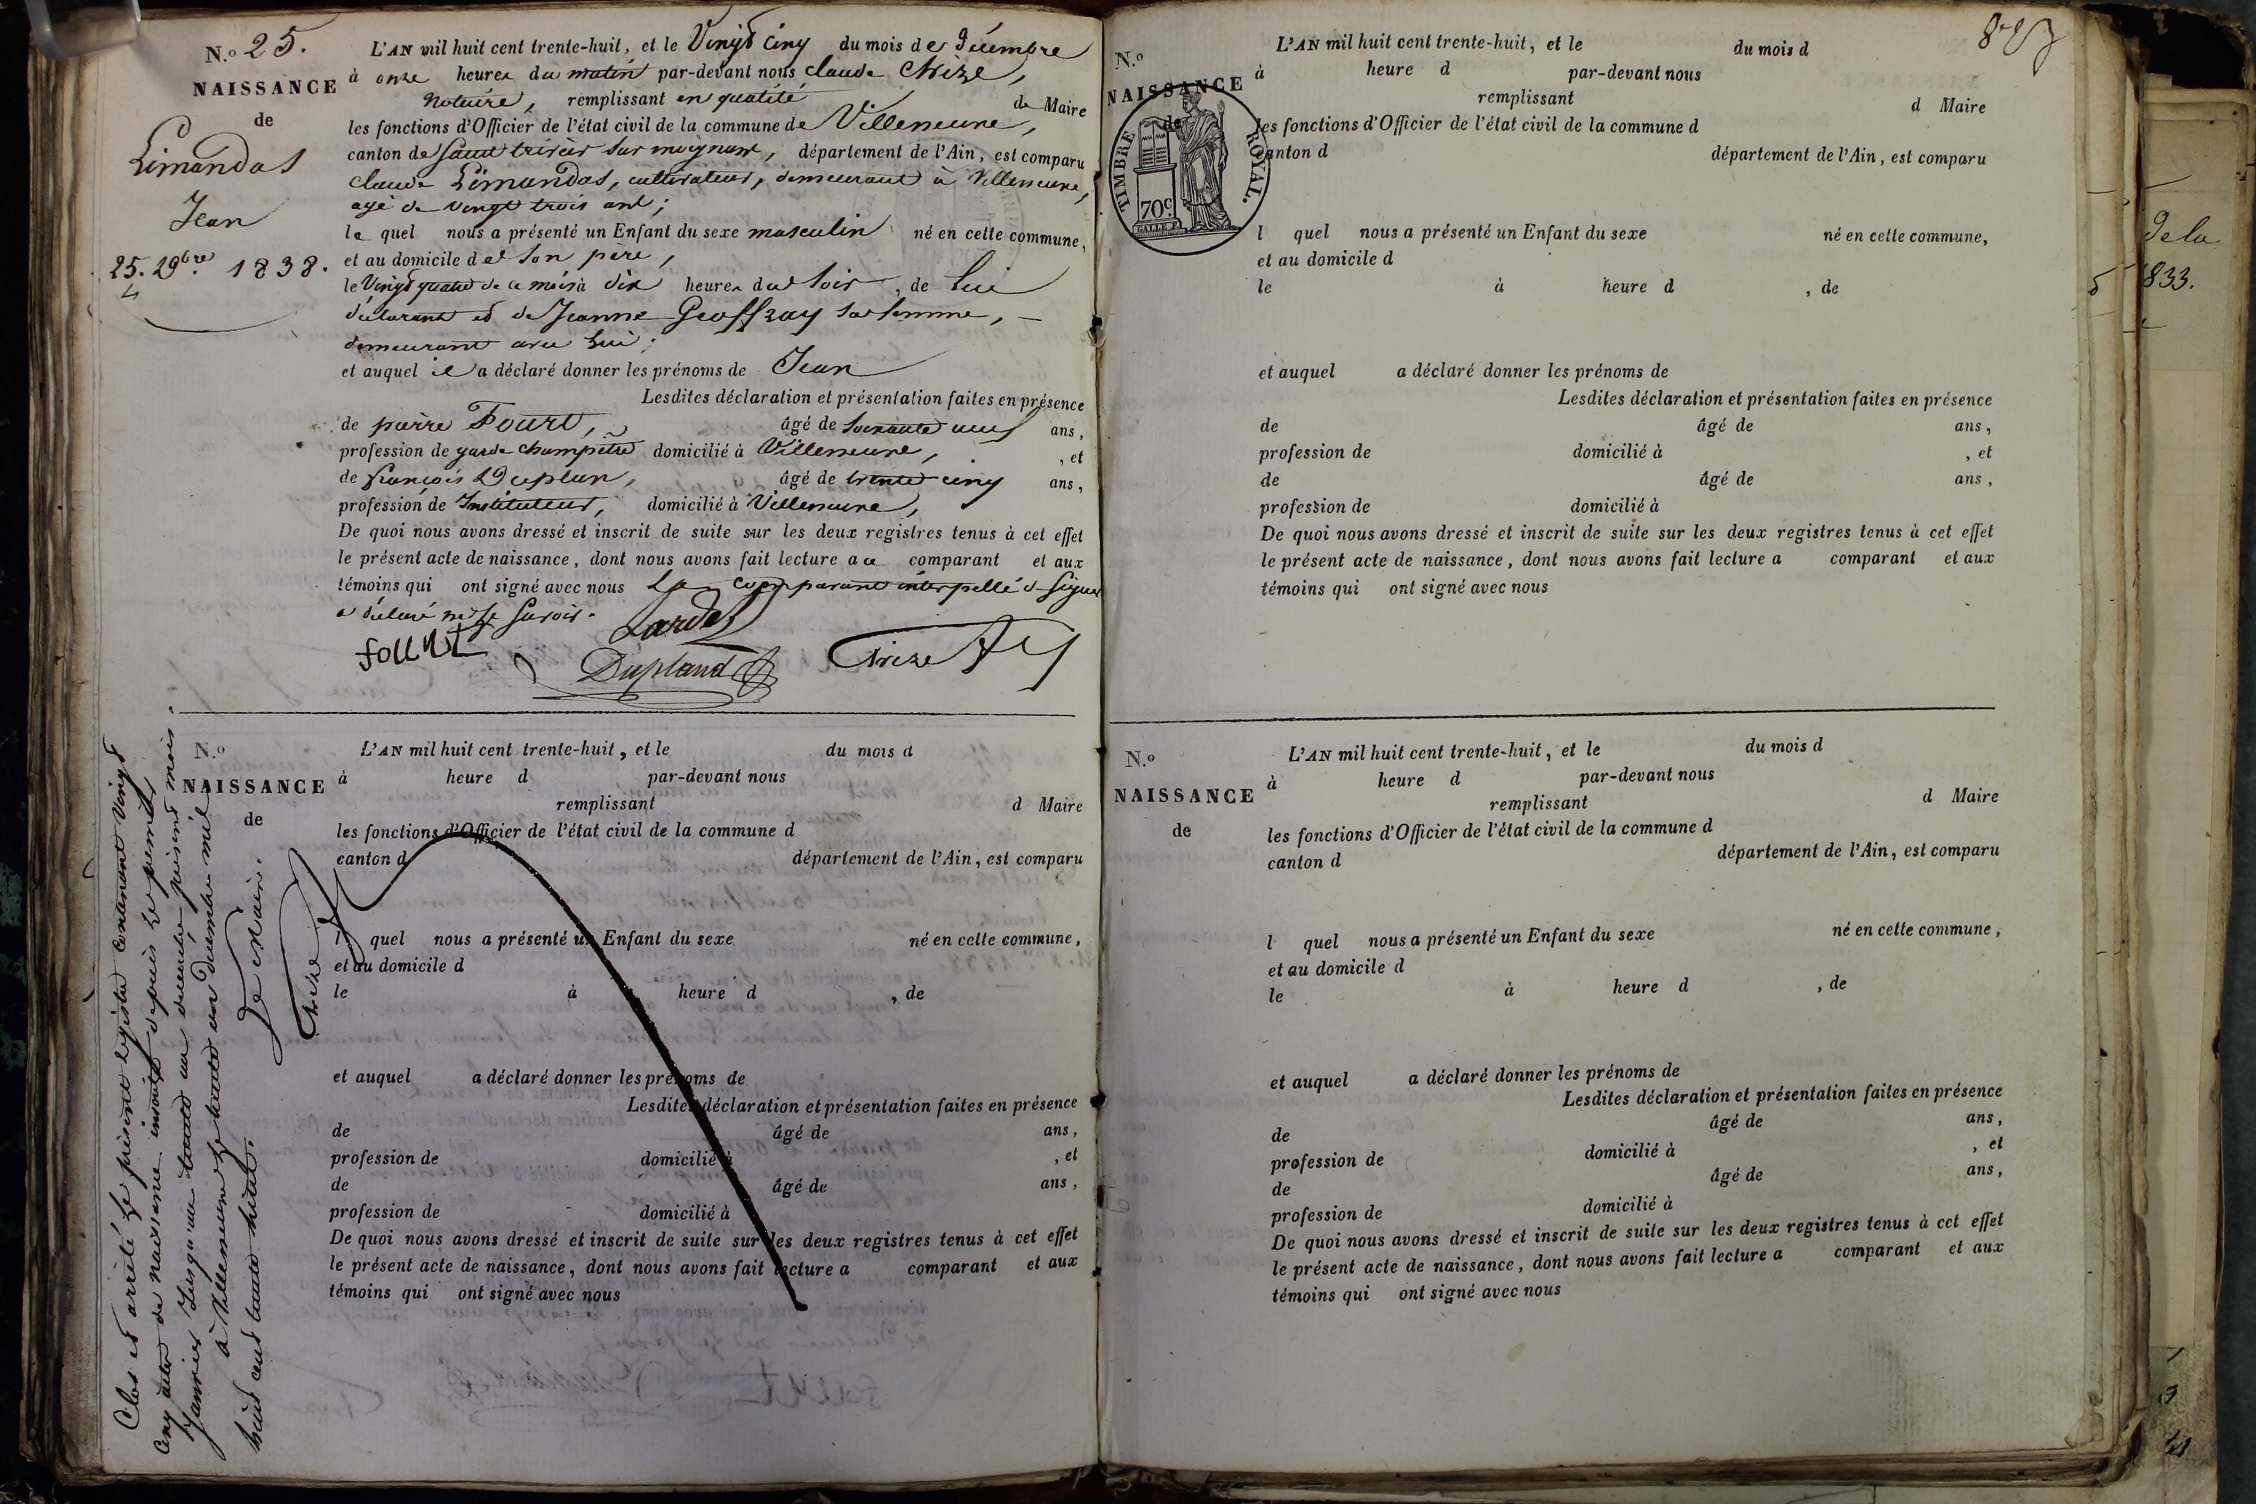 N.o 25.
NAISSANCE
de
Limandas
Jean
25. 10bre 1838.
L'AN mil huit cent trente-huit, et le Vingt cinq du mois de Décembre
à onze heures du matin par-devant nous Claude Chize,
Notaire, remplissant en qualité de Maire
les fonctions d'Officier de l'état civil de la commune de Villeneuve,
canton de Saint trivier sur moignans, département de l'Ain, est comparu
Claude Limandas, cultivateur, demeurant à Villeneuve,
agé de vingt trois ans;
le quel nous a présenté un Enfant du sexe masculin né en cette commune,
et au domicile de son père,
le Vingt quatre de ce mois à dix heures du soir, de lui
déclarant et de Jeanne Geoffray sa femme,
demeurant avec lui;
et auquel il a déclaré donner les prénoms de Jean
Lesdites déclaration et présentation faites en présence
de pierre Fourt, âgé de soixante neuf ans,
profession de garde champêtre domicilié à Villeneuve, , et
de françois Duplan, âgé de trente cinq ans,
profession de Instituteur, domicilié à Villeneuve,
De quoi nous avons dressé et inscrit de suite sur les deux registres tenus à cet effet
le présent acte de naissance, dont nous avons fait lecture au comparant et aux
témoins qui ont signé avec nous Le comparant interpellé de signer
a déclaré ne le savoir.
Dupland
Chize
N.o
NAISSANCE
de
L'AN mil huit cent trente-huit, et le du mois d
à heure d par-devant nous
remplissant d Maire
les fonctions d'Officier de l'état civil de la commune d
canton d département de l'Ain, est comparu
l quel nous a présenté un Enfant du sexe né en cette commune,
et au domicile d
le à heure d , de
et auquel a déclaré donner les prénoms de
Lesdites déclaration et présentation faites en présence
de âgé de ans,
profession de domicilié à , et
de âgé de ans,
profession de domicilié à
De quoi nous avons dressé et inscrit de suite sur les deux registres tenus à cet effet
le présent acte de naissance, dont nous avons fait lecture a comparant et aux
témoins qui ont signé avec nous
Clos et arrêté le présent registre contenant vingt
cinq actes de naissance inscrits depuis le premier
Janvier jusqu'au trente un décembre présent mois.
à Villeneuve le trente un Décembre mil
huit cent trente huit.
Le Maire.
Chize
N.o
NAISSANCE
de
TIMBRE ROYAL.
70c.
L'AN mil huit cent trente-huit, et le du mois d
à heure d par-devant nous
remplissant d Maire
les fonctions d'Officier de l'état civil de la commune d
canton d département de l'Ain, est comparu
l quel nous a présenté un Enfant du sexe né en cette commune,
et au domicile d
le à heure d , de
et auquel a déclaré donner les prénoms de
Lesdites déclaration et présentation faites en présence
de âgé de ans,
profession de domicilié à , et
de âgé de ans,
profession de domicilié à
De quoi nous avons dressé et inscrit de suite sur les deux registres tenus à cet effet
le présent acte de naissance, dont nous avons fait lecture a comparant et aux
témoins qui ont signé avec nous
N.o
NAISSANCE
de
L'AN mil huit cent trente-huit, et le du mois d
à heure d par-devant nous
remplissant d Maire
les fonctions d'Officier de l'état civil de la commune d
canton d département de l'Ain, est comparu
l quel nous a présenté un Enfant du sexe né en cette commune,
et au domicile d
le à heure d , de
et auquel a déclaré donner les prénoms de
Lesdites déclaration et présentation faites en présence
de âgé de ans,
profession de domicilié à , et
de âgé de ans,
profession de domicilié à
De quoi nous avons dressé et inscrit de suite sur les deux registres tenus à cet effet
le présent acte de naissance, dont nous avons fait lecture a comparant et aux
témoins qui ont signé avec nous
de la
833.